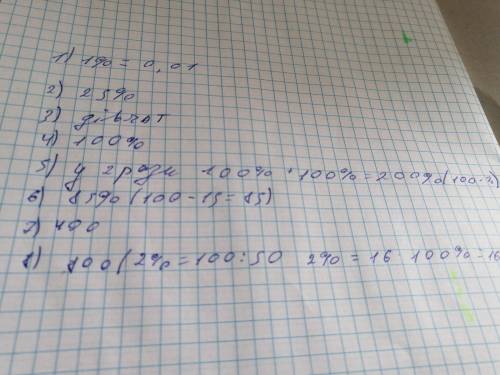 1) 1% = 0,01
2) 25%
3)
4) 100%
5) у 2 рази 100% · 100% = 200% (100·2)
6) 85% (100 - 15 = 85)
7) 400
8) 800 (2% = 100 : 50 2% = 16 100% = 16